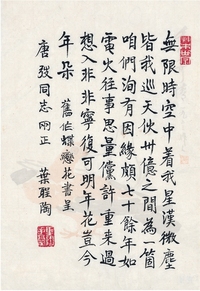 無限時空中着我星漢微塵
皆我巡天伙卅億之間為一箇
咱們洵有因緣頗七十餘年如
電火往事思量儻許重來過
想入非非寧復可明年花豈今
年朵 舊作蝶戀花書呈
唐弢同志兩正 葉聖陶